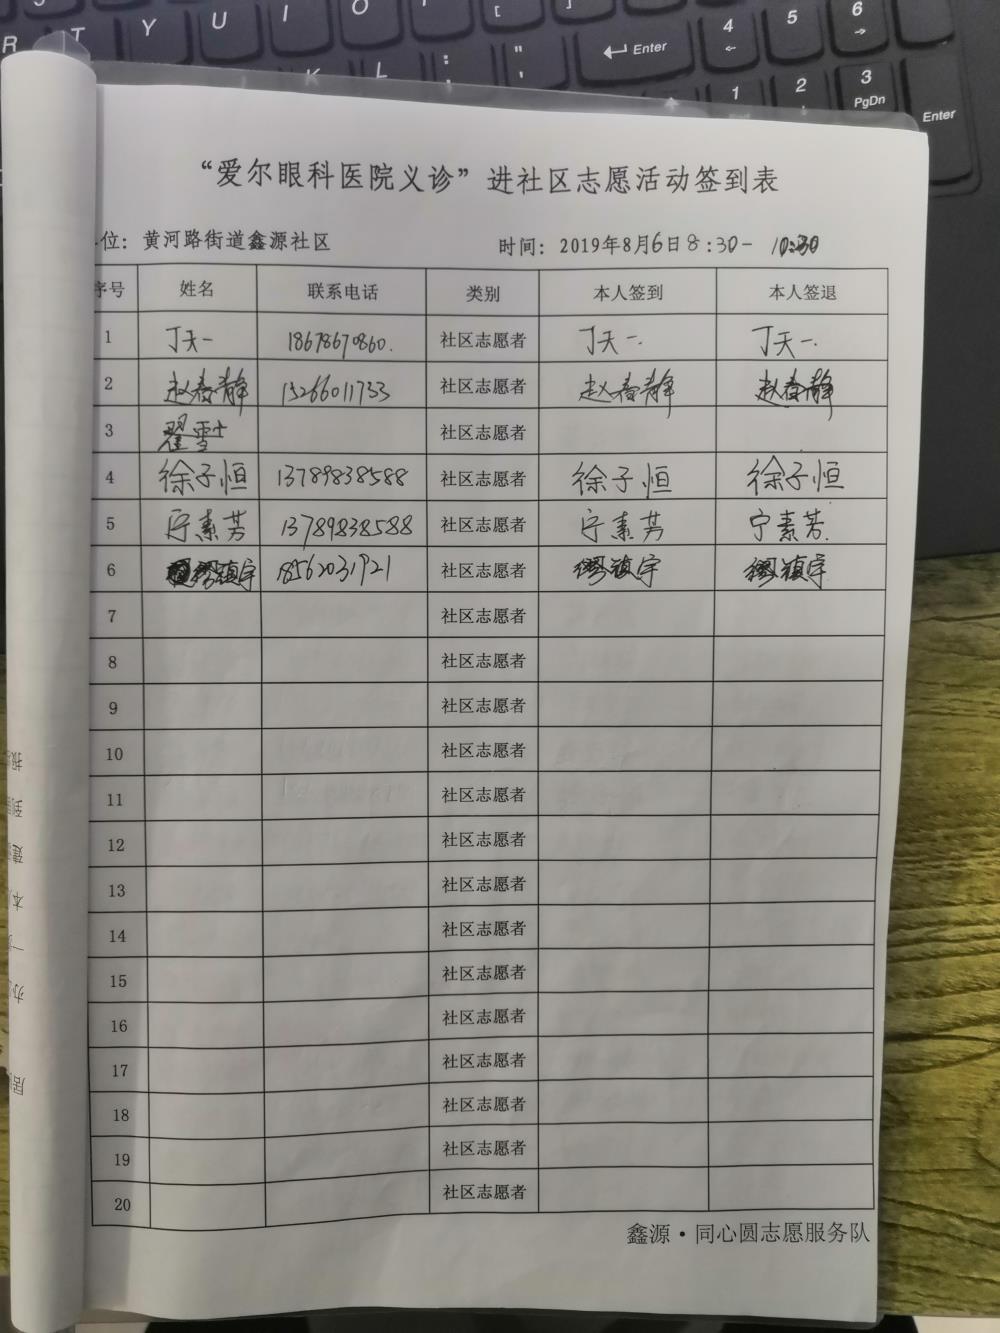 R T Y U I O [
K L : ; " ' Enter 4 5 6
1 2 3 PgDn Enter
“爱尔眼科医院义诊”进社区志愿活动签到表
位：黄河路街道鑫源社区 时间：2019年8月6日8:30- 10:30
序号 姓名 联系电话 类别 本人签到 本人签退
1 丁天一 18678670860. 社区志愿者 丁天一. 丁天一.
2 赵春静 13266011733 社区志愿者 赵春静 赵春静
3 翟雪 社区志愿者
4 徐子恒 13789838588 社区志愿者 徐子恒 徐子恒
5 宁素芳 13789838588 社区志愿者 宁素芳 宁素芳.
6 缪镇宇 18562031921 社区志愿者 缪镇宇 缪镇宇
7 社区志愿者
8 社区志愿者
9 社区志愿者
10 社区志愿者
11 社区志愿者
12 社区志愿者
13 社区志愿者
14 社区志愿者
15 社区志愿者
16 社区志愿者
17 社区志愿者
18 社区志愿者
19 社区志愿者
20 社区志愿者
鑫源·同心圆志愿服务队